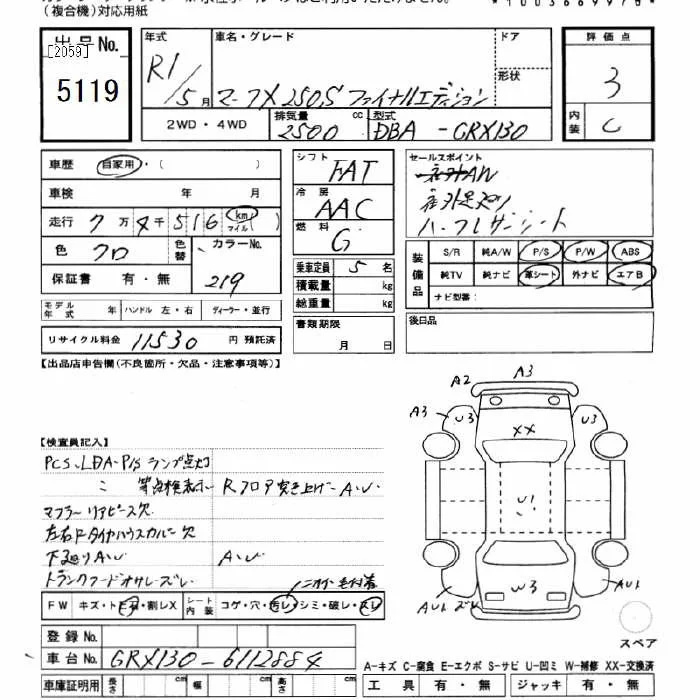 （複合機）対応用紙
出品No.
[2059]
5119
年式 R1/5月
車名・グレード マークX 250S ファイナルエディション
ドア
形状
評価点 3
内装 C
2WD・4WD
排気量 2500 cc
型式 DBA-GRX130
車歴 自家用・( )
車検 年 月
走行 7万4千516 km マイル ( )
色 クロ 色替 カラーNo. 219
保証書 有・無
モデル年式 年 ハンドル 左・右 ディーラー・並行
リサイクル料金 11530 円 預託済
シフト FAT
冷房 AAC
燃料 G
乗車定員 5 名
積載量 kg
総重量 kg
書類期限 月 日
セールスポイント
ハーフレザーシート
装備品
S/R 純A/W P/S P/W ABS
純TV 純ナビ 革シート 外ナビ エアB
ナビ型番：
後日品
【出品店申告欄(不良箇所・欠品・注意事項等)】
【検査員記入】
PCS、LDA・P/S ランプ点灯
〃 等点検表示 Rフロア突き上げ A・U
マフラー リアピース欠
左右Fタイヤハウスカバー欠
下廻りA・U A・U
トランクフードオサレ・ズレ
FW キズ・トビ石・割レX シート内装 コゲ・穴・汚レ・シミ・破レ・スレ
登録No.
車台No. GRX130-6112884
車庫証明用 長さ cm 幅 cm 高さ cm
A2 A3
A3 U3 U3
XX
U1
W3
AU1 ズレ AU1
スペア
A-キズ C-腐食 E-エクボ S-サビ U-凹ミ W-補修 XX-交換済
工具 有・無 ジャッキ 有・無